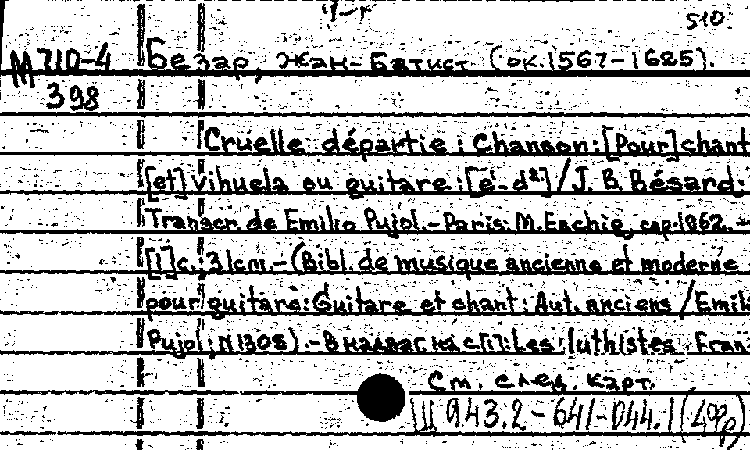 510.
М 710-4 Безар, Жан-Батист (ок.1567-1625).
398
Cruelle départie : Chanson: [Pour] chant
[et] vihuela ou guitare : [e¹-d²] / J. B. Bésard.
Transcr. de Emilio Pujol. - Paris: M. Eschig, cop. 1962. -
[1] с.; 31cm. - (Bibl. de musique ancienne et moderne
pour guitare: Guitare et chant: Aut. anciens / Emil
Pujol; N 1308). - В надзаг. на с.[1]: Les luthistes. Fran
См. след. карт.
Щ 943.2-641-044.1(4Фр)